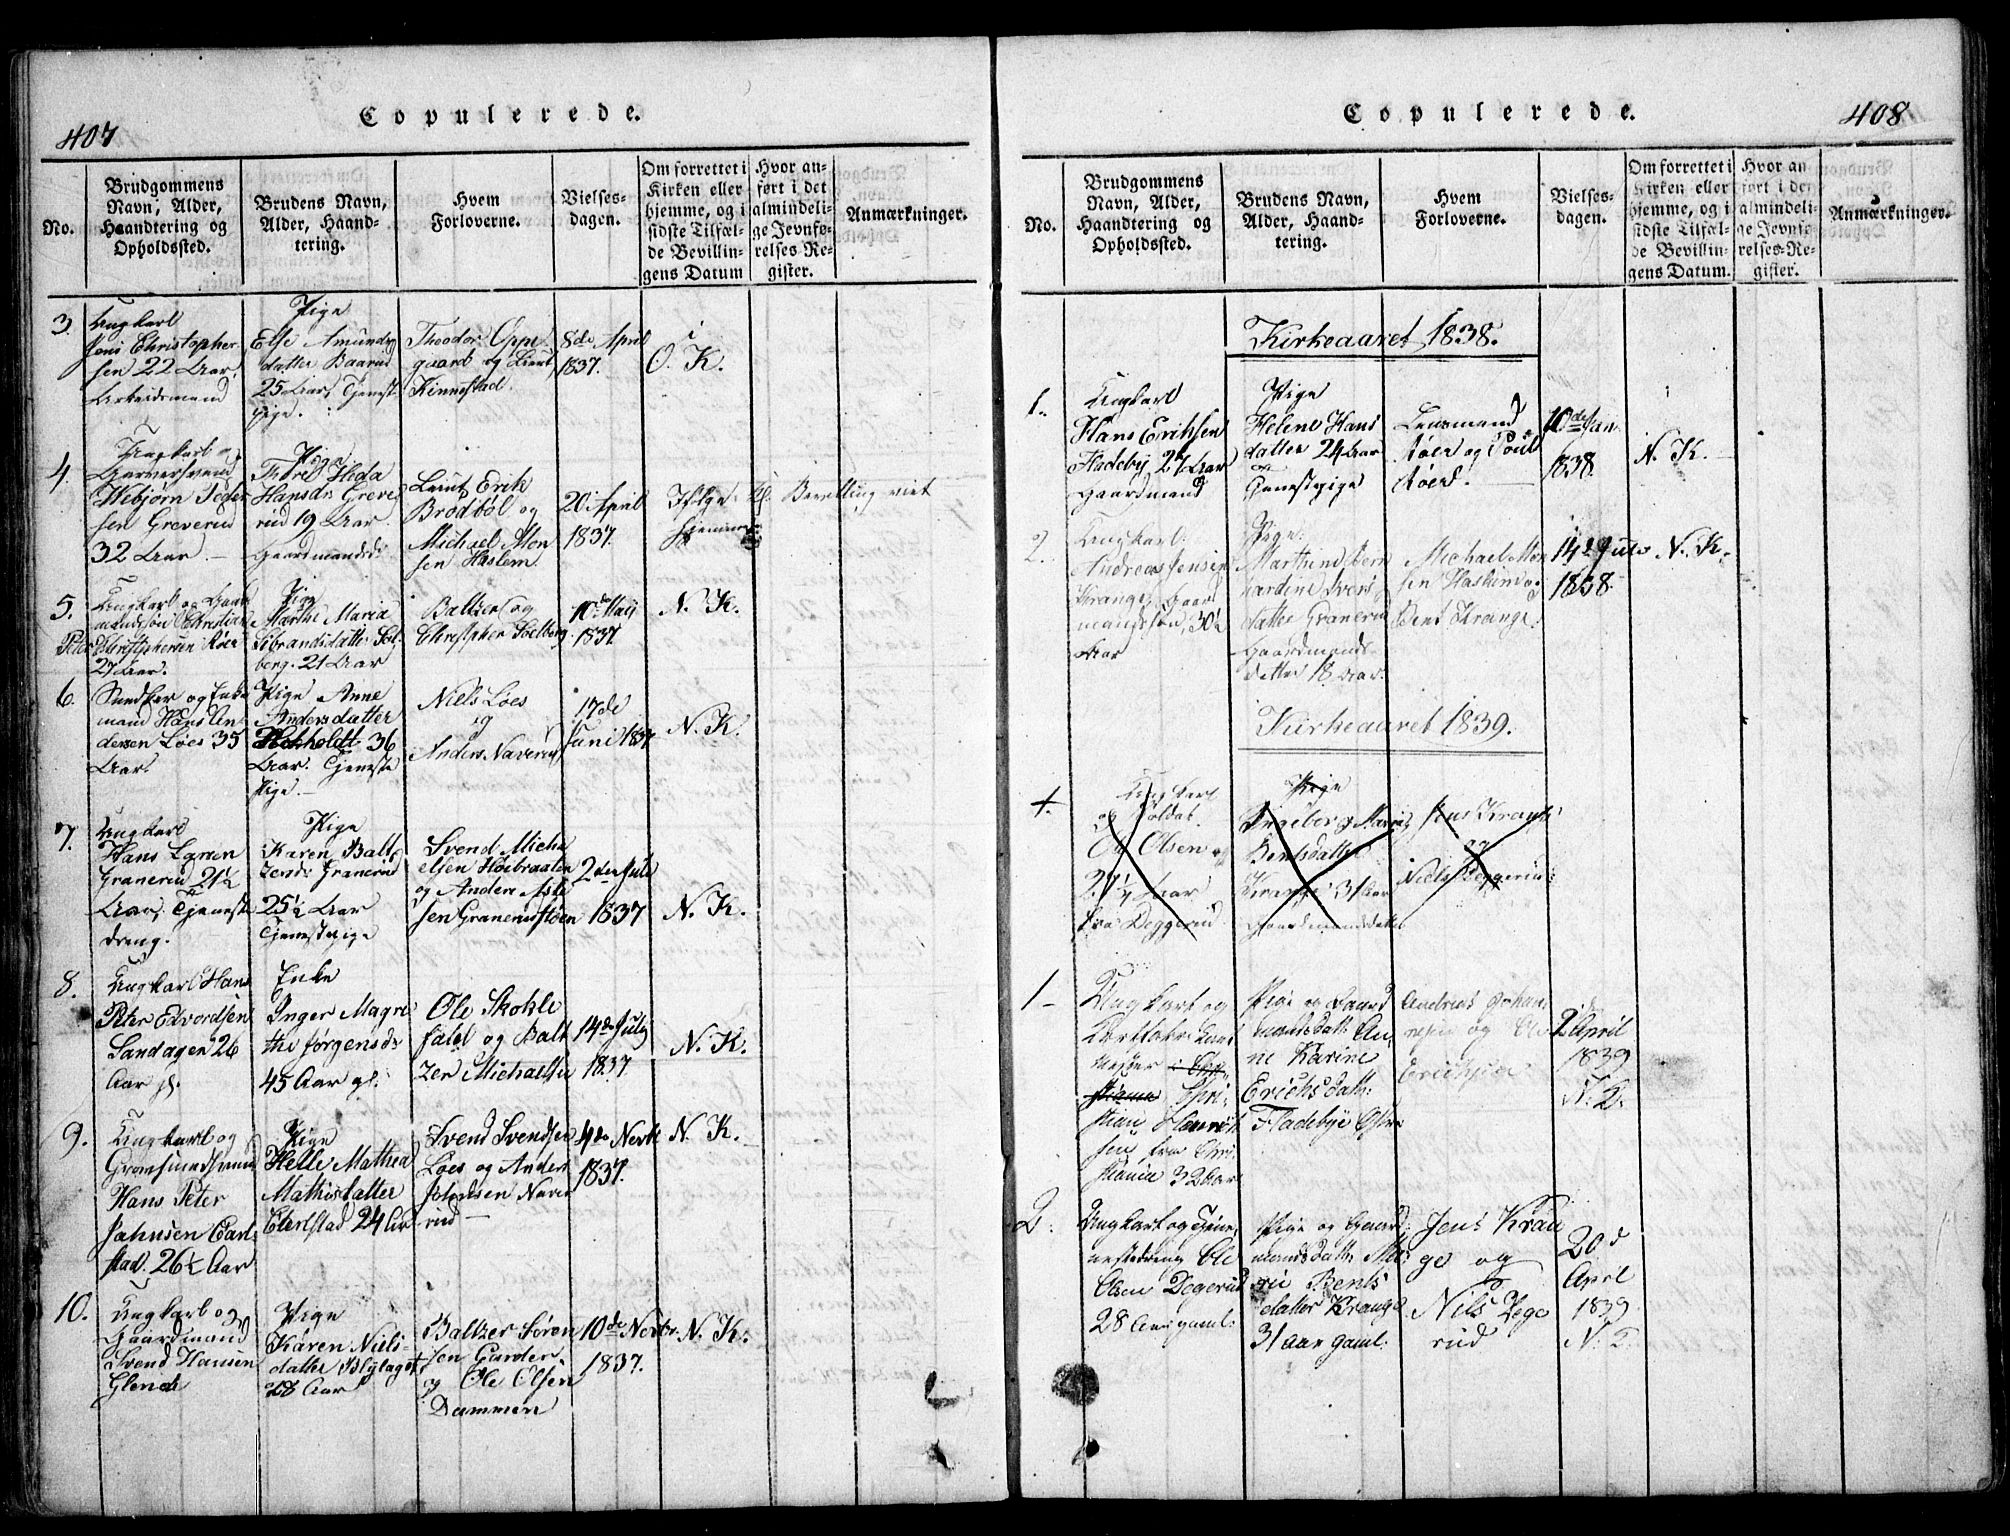 407
Copulerede.
No.
Brudgommens
Navn, Alder,
Haandtering og
Opholdssted.
Brudens Navn,
Alder, Haand-
tering.
Hvem
Forloverne.
Vielses-
dagen.
Om forrettet i
Kirken eller
hjemme, og i
sidste Tilfæl-
de Bevillin-
gens Datum
Hvor an-
ført i det
almindeli-
ge Jevnfø-
relses-Re-
gister.
Anmærkninger.
3.
Ungkarl
Jens Christopher
sen 22 Aar
Arbeidsmand
Pige
Else Amunds
datter Baarud
25 Aar, Tjenest
pige.
Theodor Oppe
gaard og Lieut
Kinnestad.
8de April
1837.
i
O. K.
4.
Ungkarl og
Garversvend
Peder
sen Greverud
32 Aar
Pige
Hansdr Greve
rud 19 Aar
Gaardmandsdr
Lieut Erik
Brodbøl og
Michael Mon
sen Haslem
20 April
1837.
Ifølge Kgl. Bevilling viet
hjemme
5.
Ungkarl og Gaard
mandssøn Christian
Peter Christophersen Røer
27 Aar.
Pige
Marthe Maria
Sibrandsdatter Sol
berg. 21 Aar
Baltzer og
Christopher Soelberg
10de Maij
1837
N. K.
6.
Snedker og Enke
mand Hans An
dersen Løes 35
Aar
Pige Anne
Andersdatter
36
Aar. Tjeneste
Pige.
Niels Løes
og
Anders Naverud
17de
Juni 1837
N. K.
7.
Ungkarl
Hans Larsen
Granerud 21½
Aar. Tjeneste
dreng.
Pige
Karen Balt
zersdr Granerud
25½ Aar
Tjenestepige
Svend Micha
elsen Høibraaten
og Anders Asle
sen Granerudsløen
2den Juli
1837
N. K.
8.
Ungkarl Hans
Peter Edvordsen
Sandagen 26
Aar gl.
Enke
Inger Magre
the Jørgensdr
45 Aar gl.
Ole Skokle
fald og Balt
zer Michaelsen
14de July
1837
N. K.
9.
Ungkarl og
Hans Peter
Jahnsen Carl
stad. 26½ Aar
Pige
Helle Mathea
Mathisdatter
Carlstad 24 Aar
Svend Svendsen
Løes og Anders
Johnsen Nave
rud
4de Novbr
1837.
N. K.
10.
Ungkarl og
Gaardmand
Svend Hansen
Glende
Pige
Karen Niels-
datter Bylaget
28 Aar
Baltzer Søren
sen Garder
og Ole Olsen
Dammen
10de Novbr
1837.
N. K.
Copulerede.
408
No.
Brudgommens
Navn, Alder,
Haandtering og
Opholdssted.
Brudens Navn,
Alder, Haand-
tering.
Hvem
Forloverne.
Vielses-
dagen.
Om forrettet i
Kirken eller
hjemme, og i
sidste Tilfæl-
de Bevillin-
gens Datum.
Hvor an
ført i det
almindeli-
ge Jevnfø-
relses-Re-
gister.
Anmærkninger.
Kirkeaaret 1838.
1.
Ungkarl
Hans Eriksen
Fladeby 27 Aar
Gaardmand
Pige
Helene Hans
datter 24 Aar
Tjenestepige
Lensmand
Røer og Poul
Røer.
10de Jan.
1838.
N. K.
2.
Ungkarl.
Andreas Jensen
Krange, Gaard
mandssøn, 30½
Aar
Pige.
Marthine Bern
hardine Ivers
datter Granerud
Gaardmands
datter 18 Aar.
Michael Mon
sen Haslum og
Bent Krange.
14de July
1838.
N. K.
Kirkeaaret 1839.
Ungkarl
og Soldat.
Ole Olsen
27¼ Aar
fra Deggerud
Pige
Ingeborg Maria
Bentsdatter
Krange 31 Aar
Gaardmandsdatter
Jens Krange
og
Niels Deggerud
1
Ungkarl og
Chri-
stian Henrik
sen fra Chri
stiania 32 Aar
Pige og Gaard
mandsdatt: An
ne Karine
Erichsdatt:
Fladebye Østre
Andreas Johan
nesen og Ole
Erichsen
2 April
1839
N. K.
2.
Ungkarl og Tjene
nestedreng Ole
Olsen Degerud
28 Aar gaml:
Pige og Gaard
mandsdatt: Ma
rie Bents
datter Krange
31 aar gaml.
Jens Kran
ge og
Nils Dege
rud
20d
April
1839